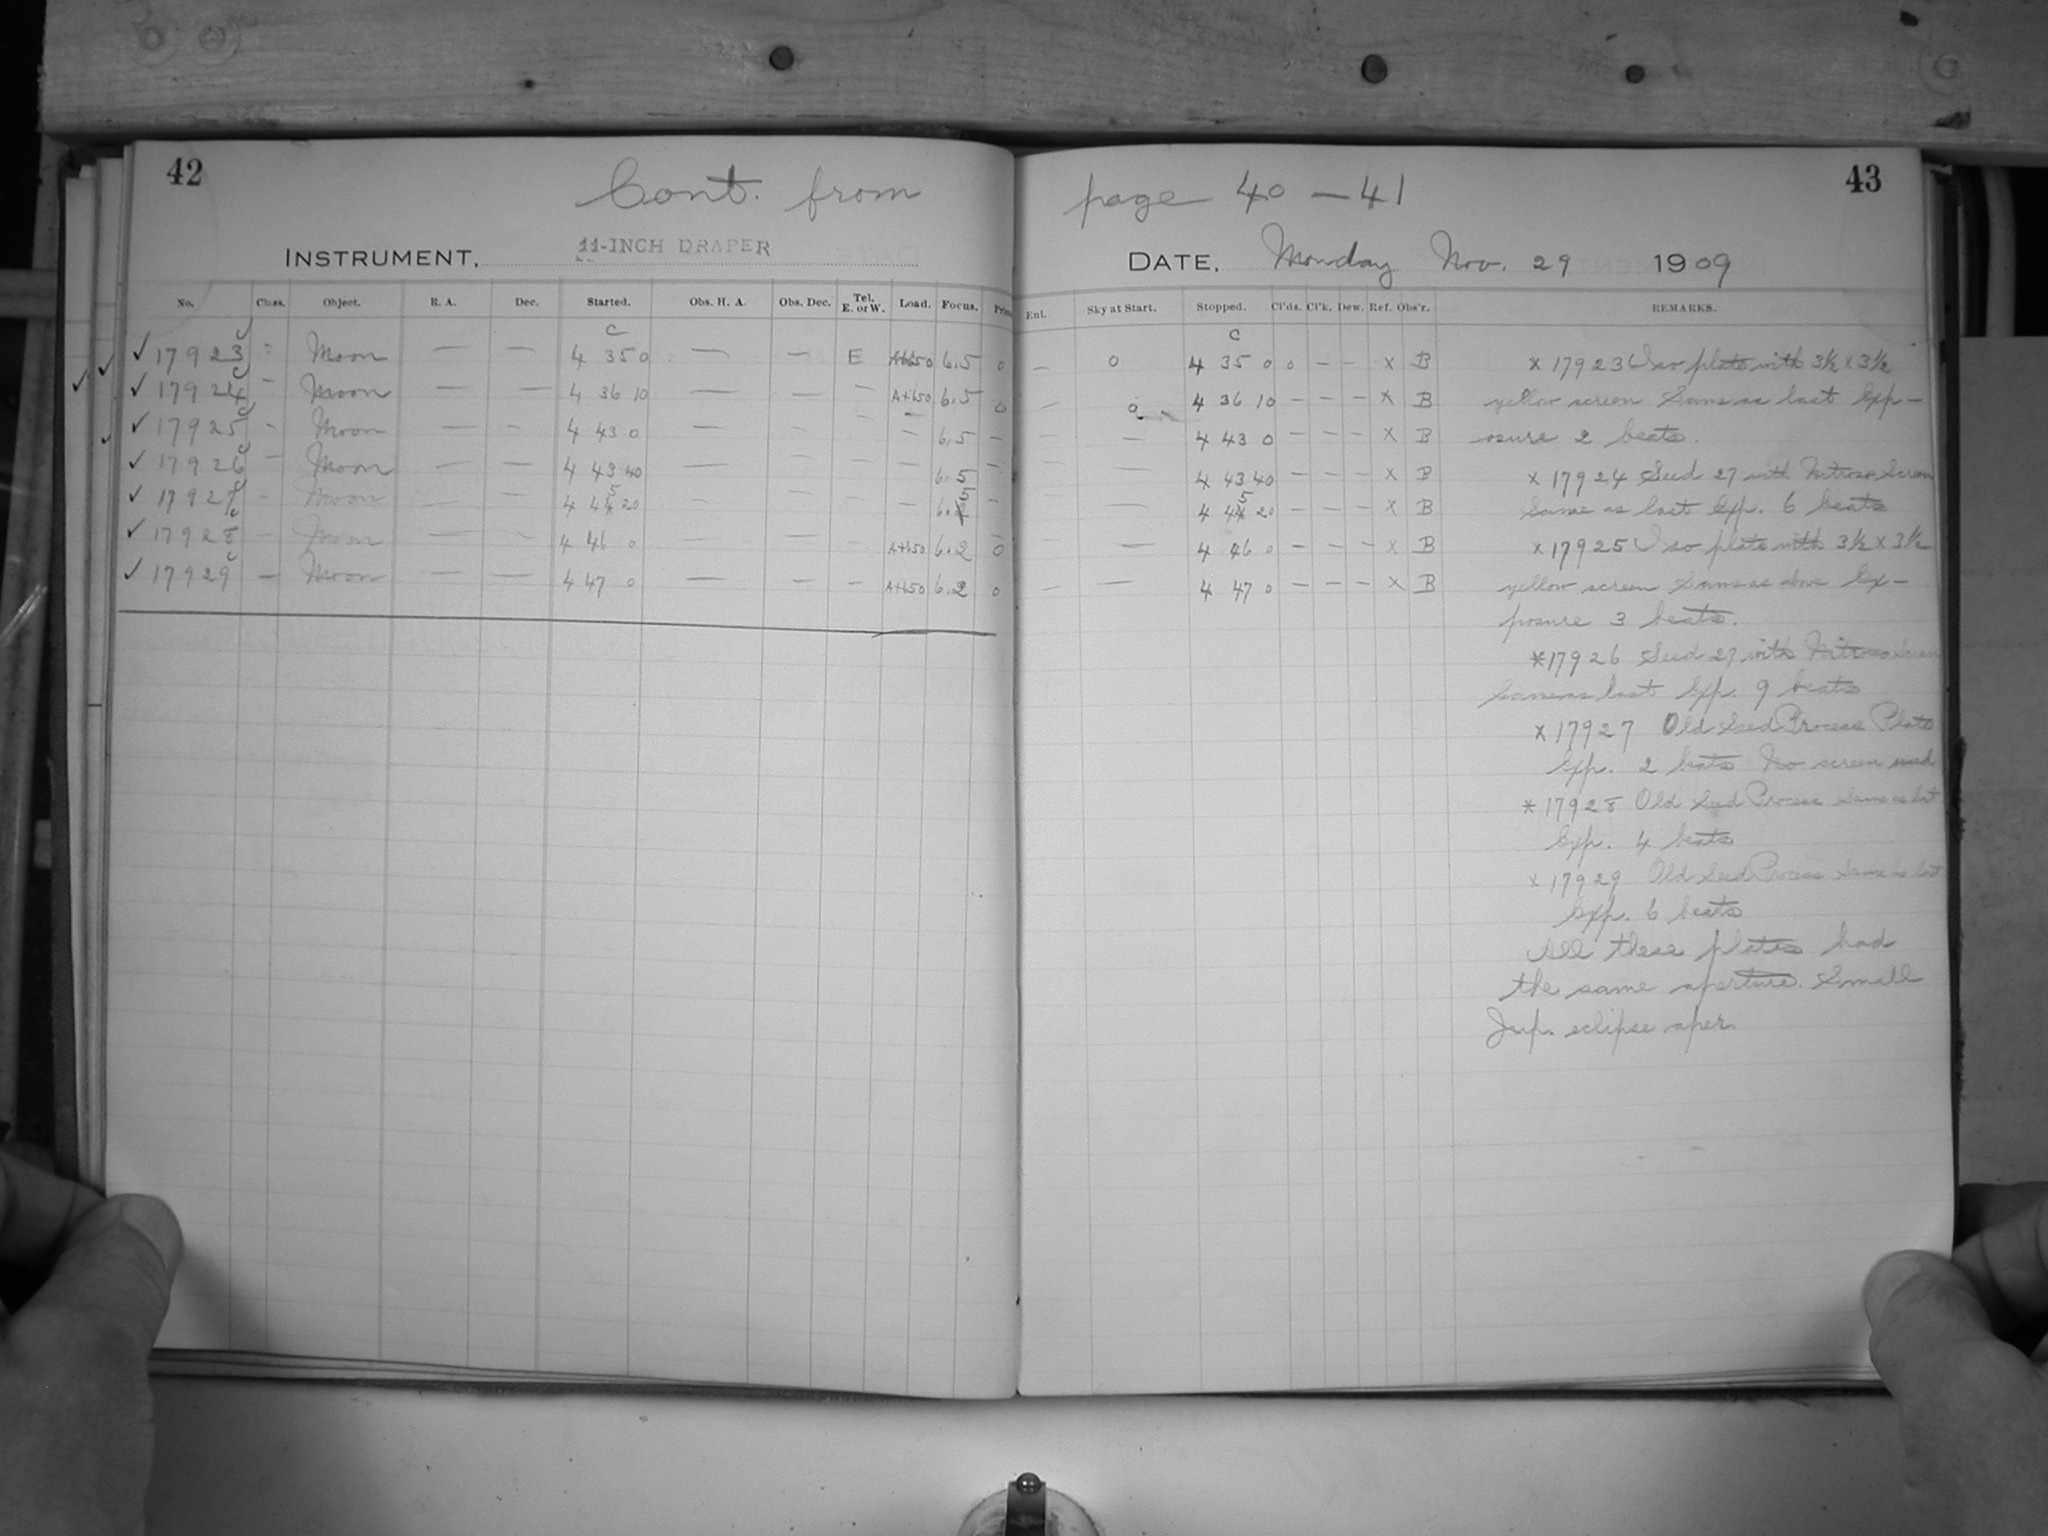 42
43
Cont. from page 40 — 41
INSTRUMENT, 11-INCH DRAPER
DATE, Monday Nov. 29 1909
No. Class. Object. R. A. Dec. Started. Obs. H. A. Obs. Dec. Tel. E. or W. Load. Focus. Enl. Sky at Start. Stopped. Cl'ds. Cl'k. Dew. Ref. Obs'r. REMARKS.
c c
✓ 17923 Moon — — 4 35 0 — — E A+650 6.5 0 — 0 4 35 0 0 — — x B
✓ 17924 - Moon — — 4 36 10 — — — A+650 6.5 0 — 0 4 36 10 — — — x B
✓ 17925 - Moon — — 4 43 0 — — — — 6.5 — — — 4 43 0 — — — x B
✓ 17926 - Moon — — 4 43 40 — — — — 6.5 — — — 4 43 40 — — — x B
✓ 17927 - Moon — — 4 45 20 — — — — 6.5 — — — 4 45 20 — — — x B
✓ 17928 - Moon — — 4 46 0 — — — A+650 6.2 0 — — 4 46 0 — — — x B
✓ 17929 — Moon — — 4 47 0 — — — A+650 6.2 0 — — 4 47 0 — — — x B
x 17923 Iso plate with 3½ x 3½
yellow screen Same as last Exp—
osure 2 beats.
x 17924 Seed 27 with Nitroso Screen
Same as last Exp. 6 beats
x 17925 Iso plate with 3½ x 3½
yellow screen Same as above Ex—
posure 3 beats.
* 17926 Seed 27 with Nitroso Screen
Same as last Exp. 9 beats
x 17927 Old Seed Process Plate
Exp. 2 beats No screen used
* 17928 Old Seed Process Same as last
Exp. 4 beats
x 17929 Old Seed Process Same as last
Exp. 6 beats
All these plates had
the same aperture. Small
Jup. eclipse aper.